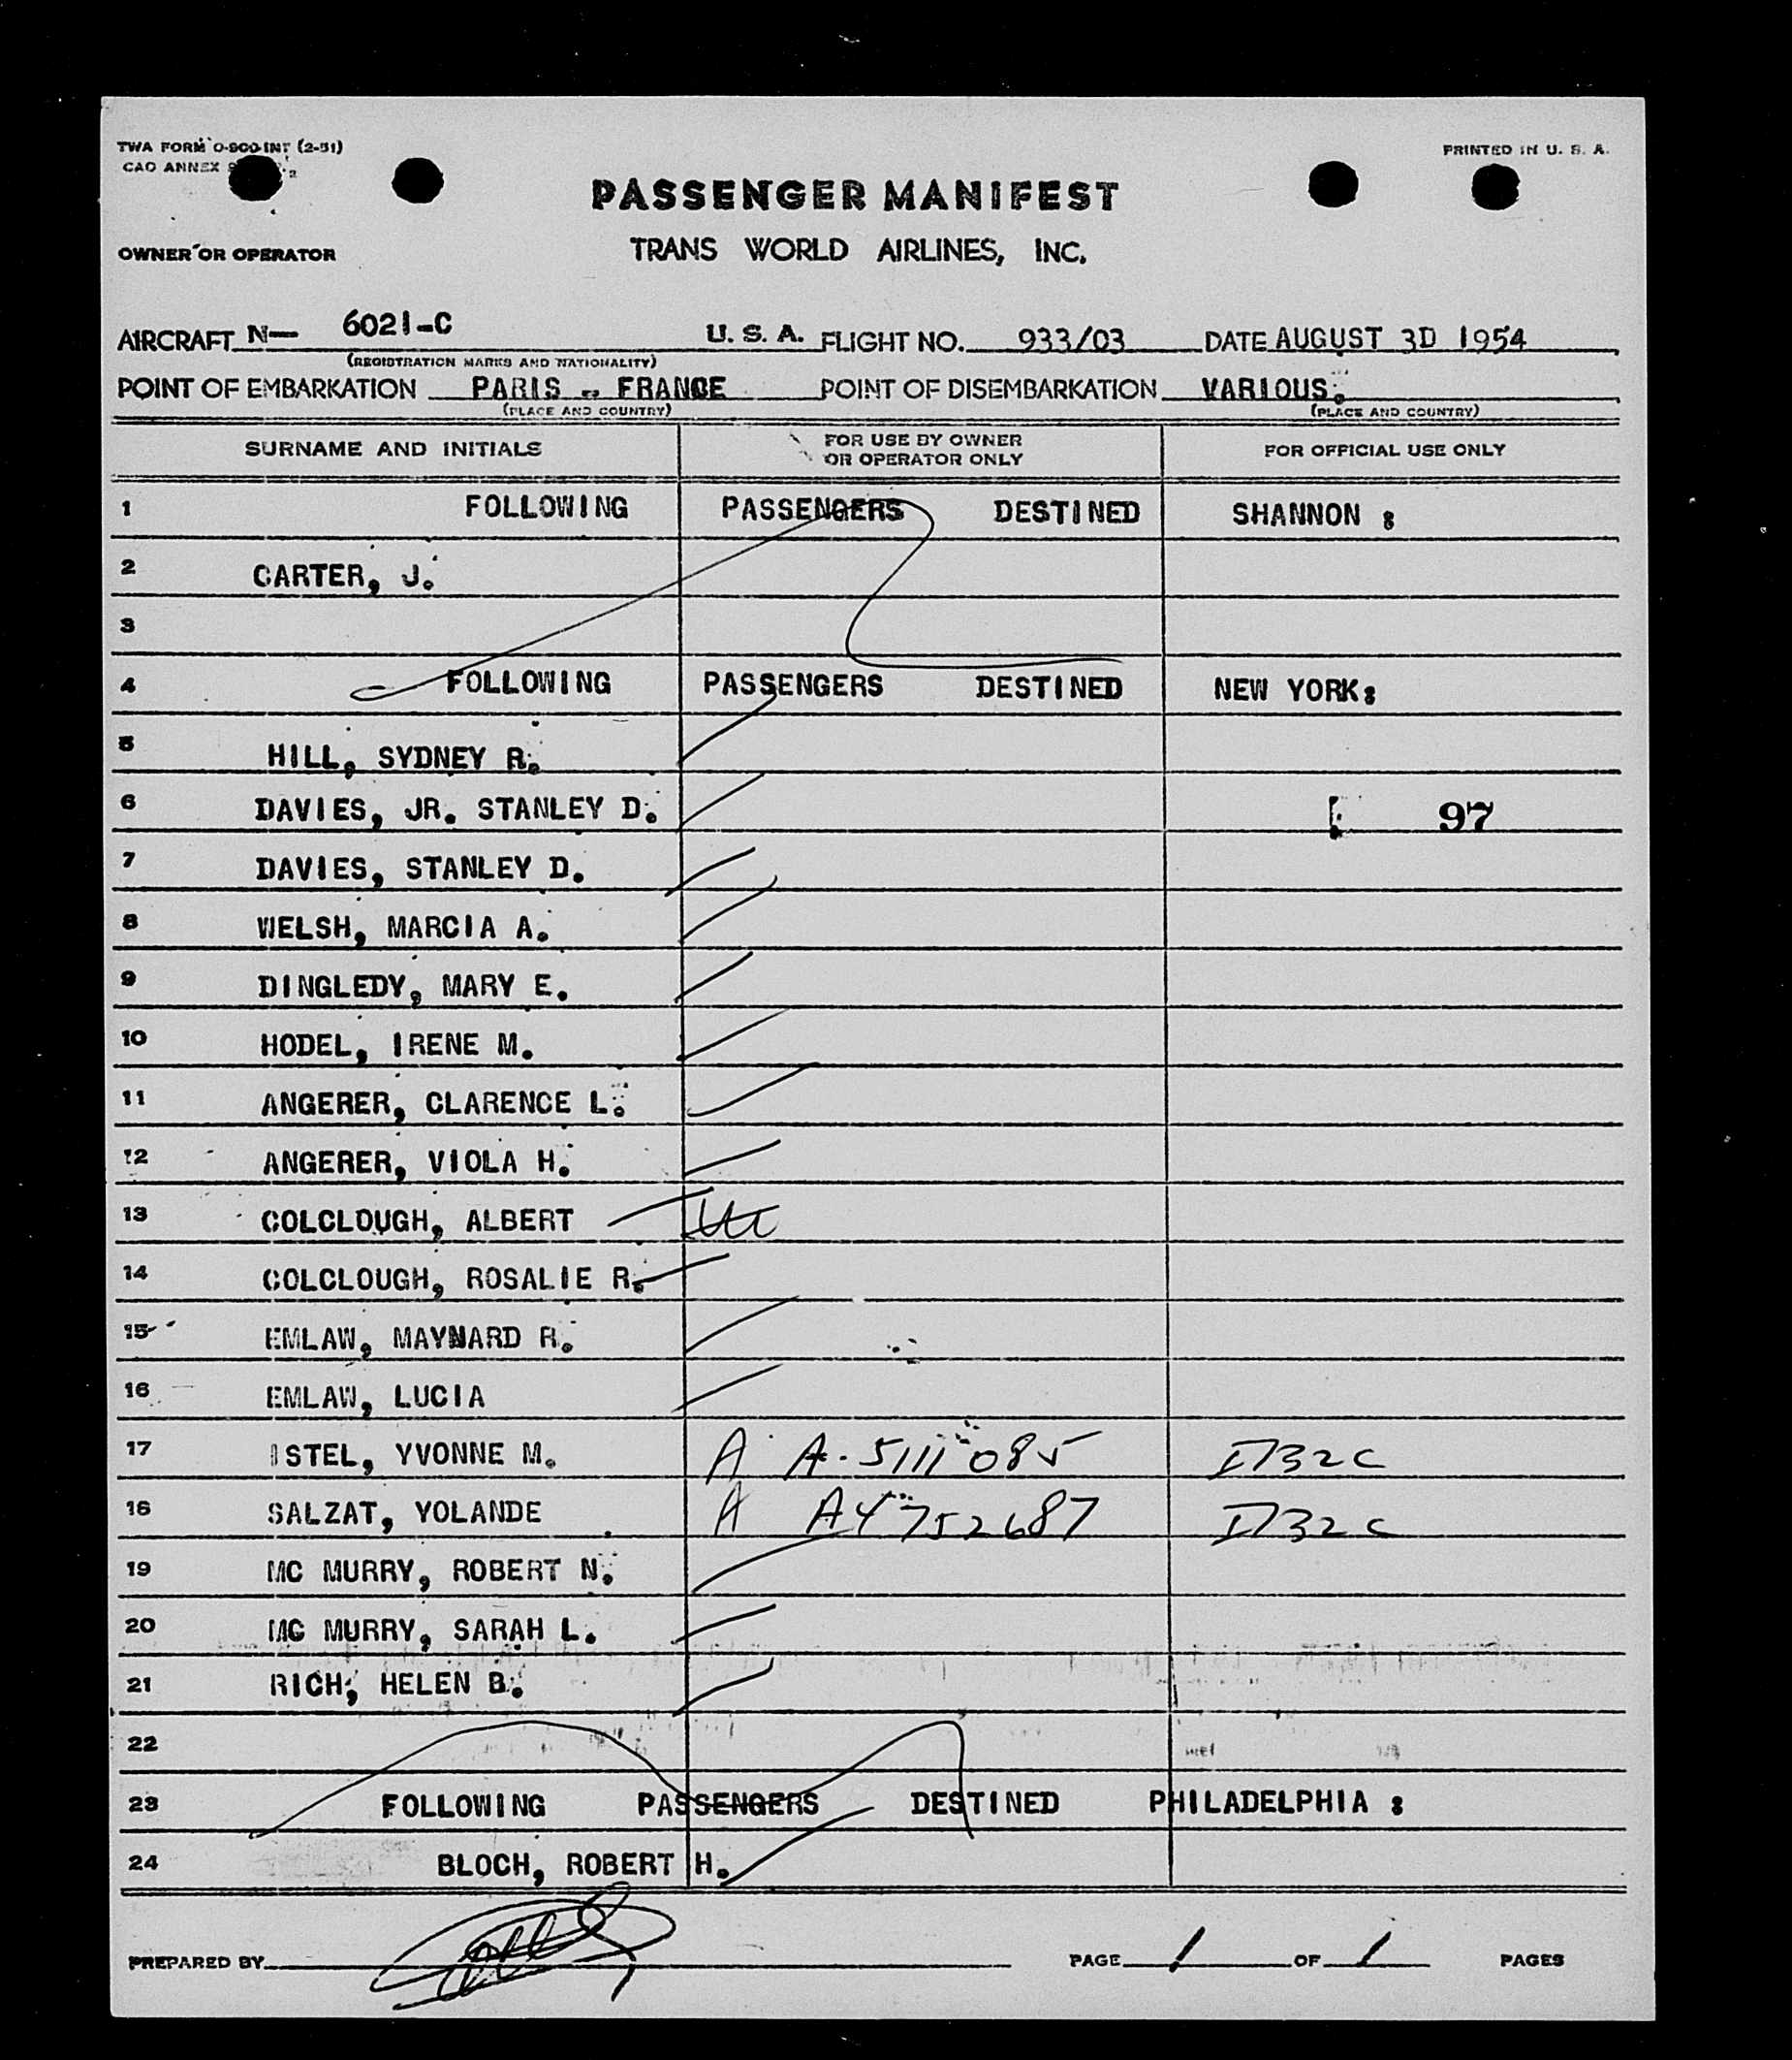 TWA FORM O-900-INT (2-51)
PRINTED IN U. S. A.
CAO ANNEX
PASSENGER MANIFEST
OWNER OR OPERATOR
TRANS WORLD AIRLINES, INC.
AIRCRAFT N— 6021-C U. S. A. FLIGHT NO. 933/03 DATE AUGUST 3D 1954
(REGISTRATION MARKS AND NATIONALITY)
POINT OF EMBARKATION PARIS - FRANCE POINT OF DISEMBARKATION VARIOUS.
(PLACE AND COUNTRY) (PLACE AND COUNTRY)
SURNAME AND INITIALS FOR USE BY OWNER OR OPERATOR ONLY FOR OFFICIAL USE ONLY
1 FOLLOWING PASSENGERS DESTINED SHANNON :
2 CARTER, J.
3
4 FOLLOWING PASSENGERS DESTINED NEW YORK:
5 HILL, SYDNEY R.
6 DAVIES, JR. STANLEY D. 97
7 DAVIES, STANLEY D.
8 WELSH, MARCIA A.
9 DINGLEDY, MARY E.
10 HODEL, IRENE M.
11 ANGERER, CLARENCE L.
12 ANGERER, VIOLA H.
13 COLCLOUGH, ALBERT
14 COLCLOUGH, ROSALIE R.
15 EMLAW, MAYNARD R.
16 EMLAW, LUCIA
17 ISTEL, YVONNE M. A A-5111085 I732C
18 SALZAT, YOLANDE A A4752687 I732C
19 MC MURRY, ROBERT N.
20 MC MURRY, SARAH L.
21 RICH, HELEN B.
22
23 FOLLOWING PASSENGERS DESTINED PHILADELPHIA :
24 BLOCH, ROBERT H.
PREPARED BY PAGE 1 OF 1 PAGES